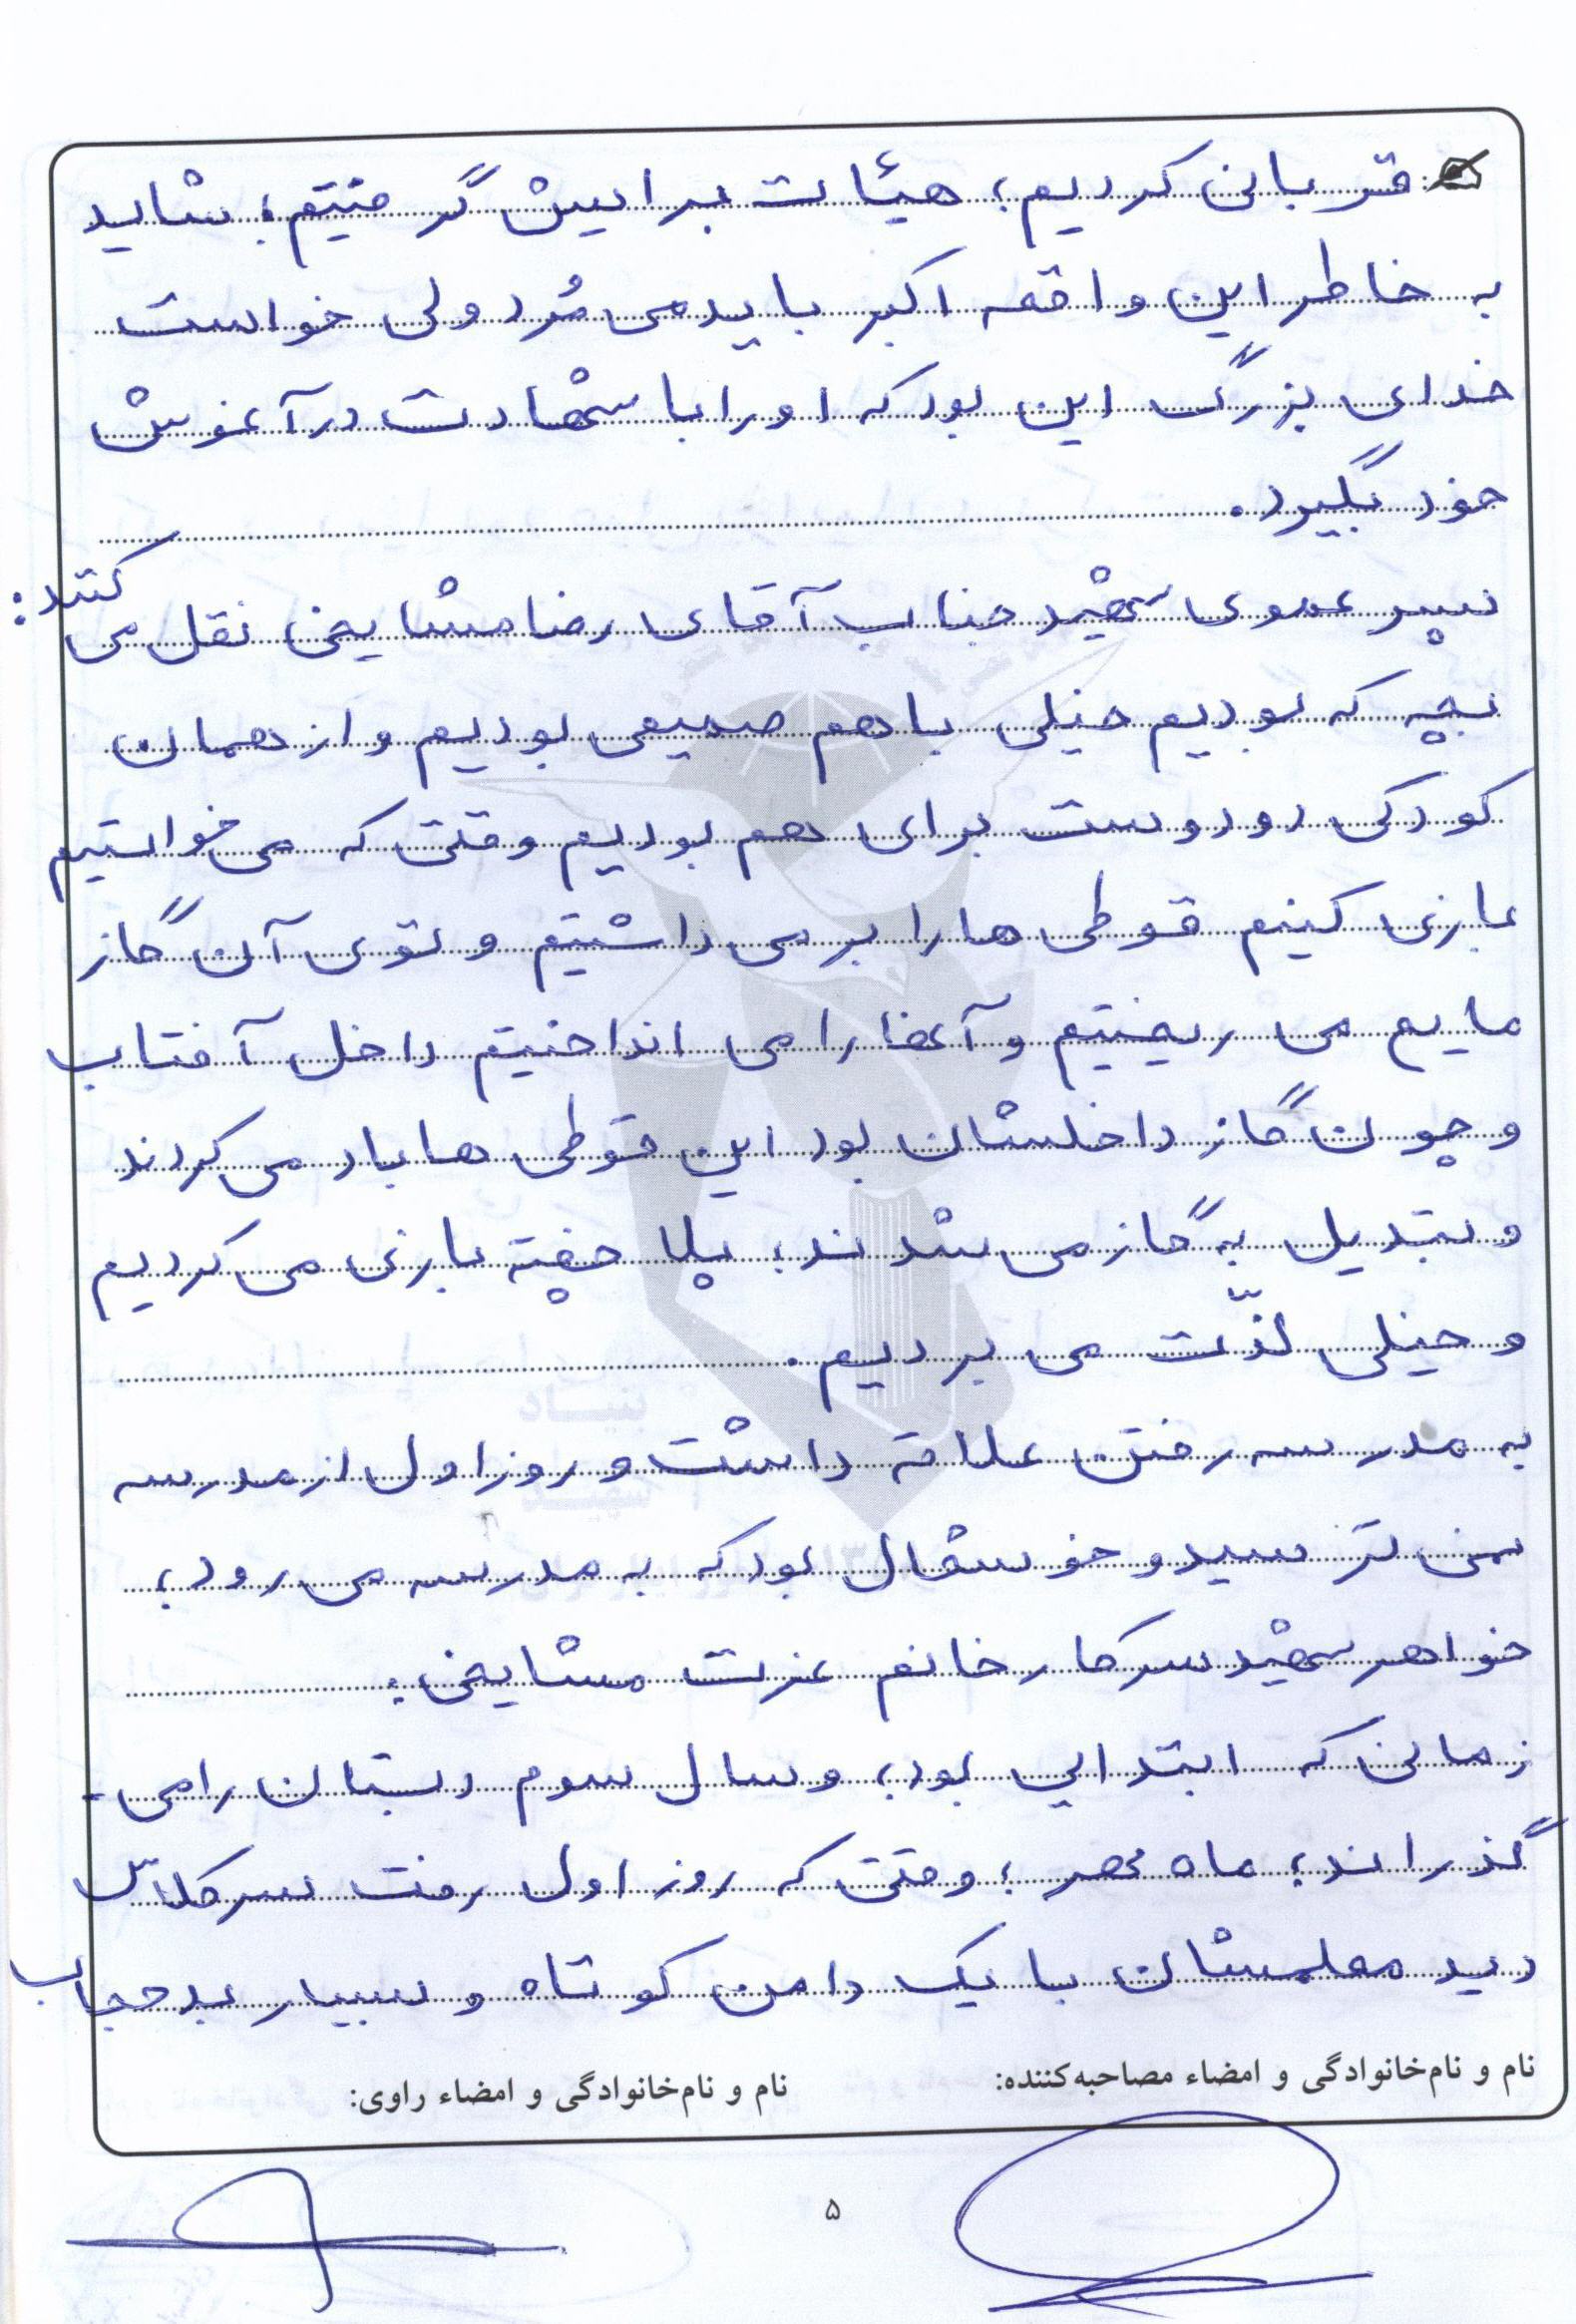 قربانی کردیم؛ هیئات برایش گرفتیم؛ شاید
به خاطر این واقعه اکبر باید می مُرد ولی خواست
خدای بزرگ این بود که او را با شهادت در آغوش
خود بگیرد.
پسر عموی شهید جناب آقای رضا مشایخی نقل می کنند:
بچه که بودیم خیلی با هم صمیمی بودیم و از همان
کودکی دو دوست برای هم بودیم وقتی که می خواستیم
بازی کنیم قوطی ها را برمی داشتیم و توی آن گاز
مایع می ریختیم و آنها را می انداختیم داخل آفتاب
و چون گاز داخلشان بود این قوطی ها باد می کردند
و تبدیل به گاز می شدند؛ پلا چفته بازی می کردیم
و خیلی لذّت می بردیم.
به مدرسه رفتن علاقه داشت و روز اول از مدرسه
نمی ترسید و خوشحال بود که به مدرسه می رود؛
خواهر شهید سرکار خانم عزت مشایخی:
زمانی که ابتدایی بود؛ و سال سوم دبستان را می-
گذراند؛ ماه مهر؛ وقتی که روز اول رفت سر کلاس
دید معلمشان با یک دامن کوتاه و بسیار بدحجاب
نام و نام‌خانوادگی و امضاء مصاحبه‌کننده: نام و نام‌خانوادگی و امضاء راوی:
۵